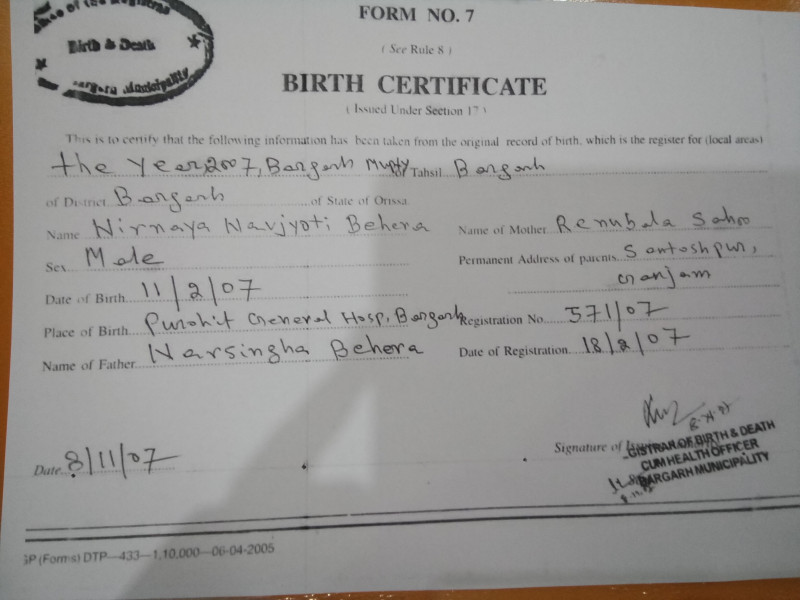 Office of the Registrar
Birth & Death
Bargarh Municipality
FORM NO. 7
( See Rule 8 )
BIRTH CERTIFICATE
( Issued Under Section 17 )
This is to certify that the following information has been taken from the original record of birth, which is the register for (local areas)
the Year 2007, Bargarh Mupty Tahsil Bargarh
of District Bargarh of State of Orissa
Name Nirnaya Navjyoti Behera
Sex Male
Date of Birth 11/2/07
Place of Birth Purohit General Hosp, Bargarh
Name of Father Narsingha Behera
Name of Mother Renubala Sahoo
Permanent Address of parents Santoshpur,
Ganjam
Registration No. 571/07
Date of Registration 18/2/07
Date 8/11/07
Signature of
GISTRAR OF BIRTH & DEATH
CUM HEALTH OFFICER
BARGARH MUNICIPALITY
GP (Forms) DTP—433—1,10,000—06-04-2005